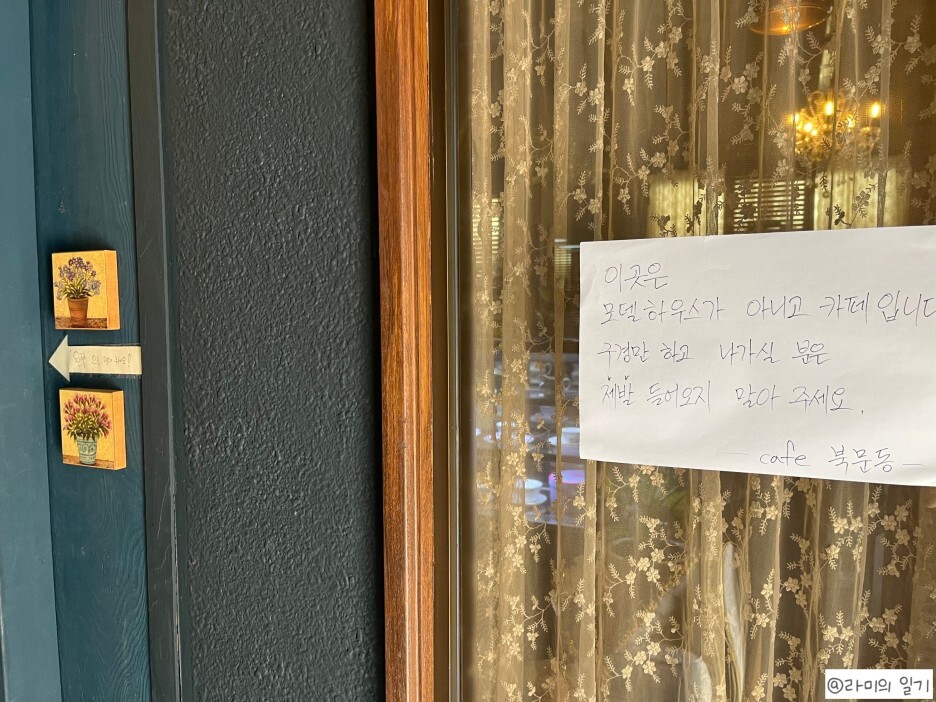 이곳은
모델하우스가 아니고 카페입니다
구경만 하고 나가실 분은
제발 들어오지 말아 주세요.
- cafe 북문동 -
@라미의 일기